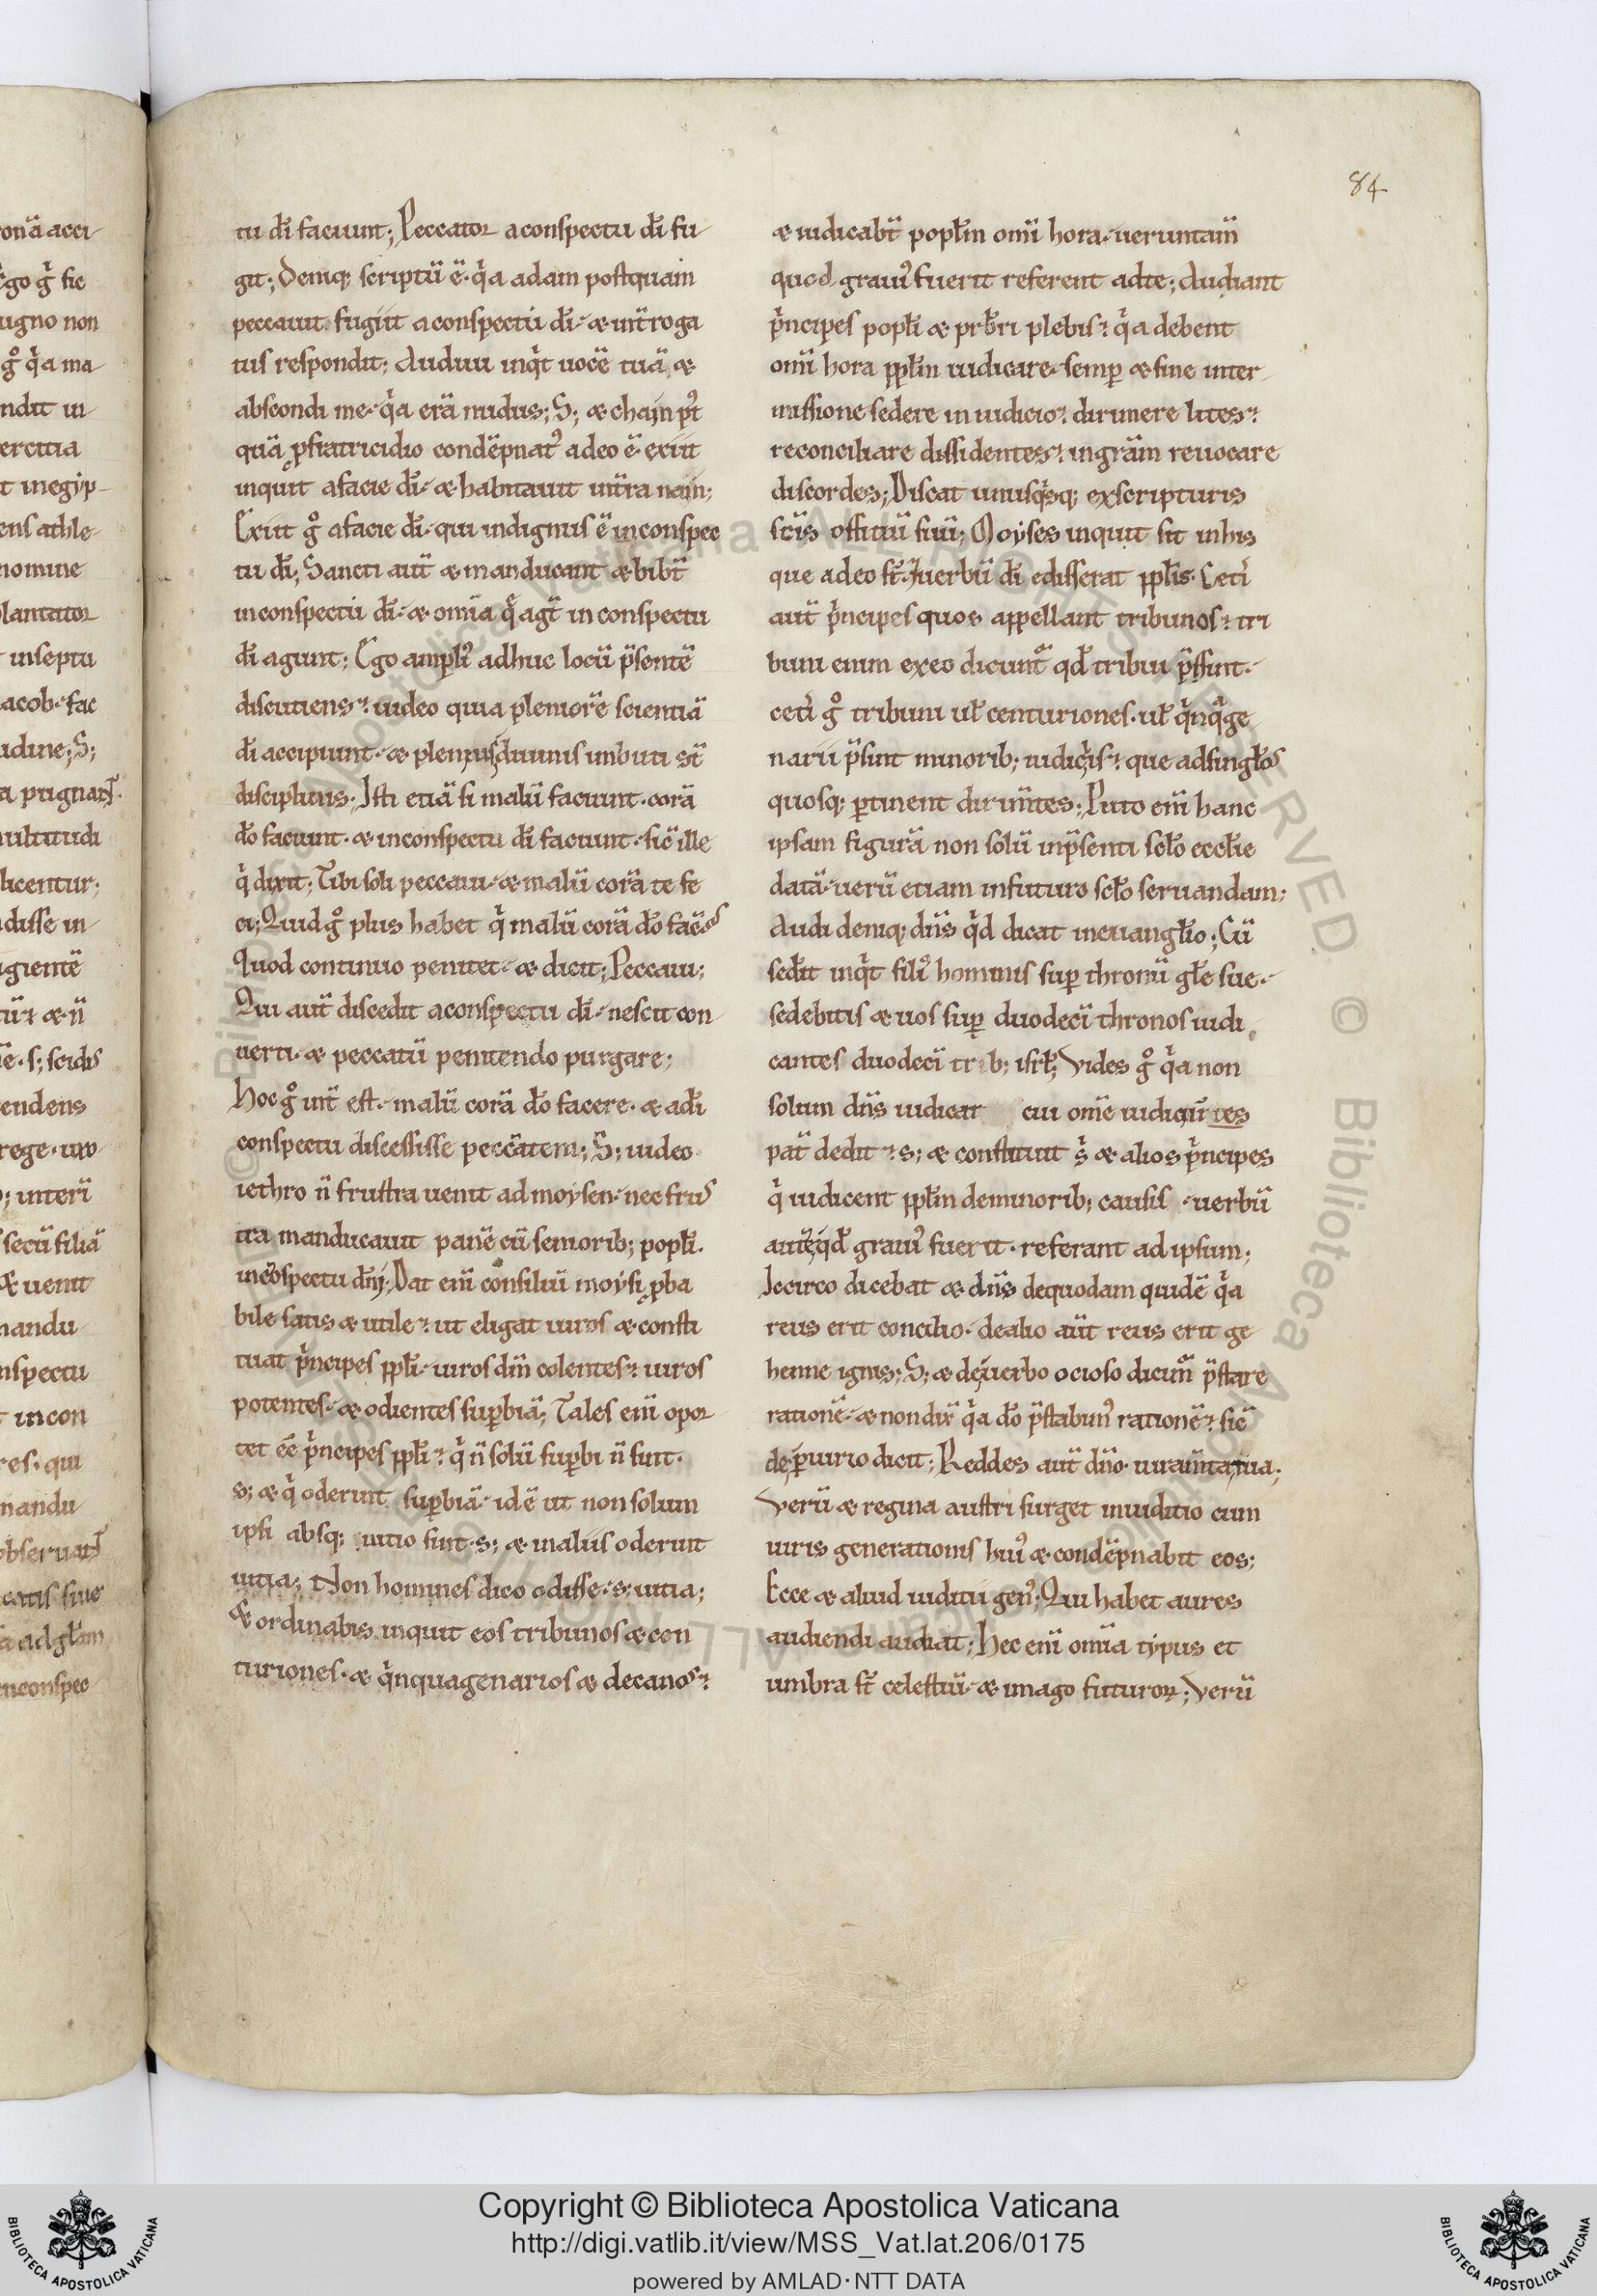 84
tu dı̄ faciunt; Peccator aconspectu dı̄ fu
git; Deniq; scriptū ē. qͥa adam postquam
peccauit fugiit aconspectu dı̄. & int̄roga
tus respondit; Audiui inqͥt uocē tuā, &
abscondi me. qͥa erā nudus; S; & chain p̾t
quā ꝓfratricidio condēpnatꝰ adeo ē. exiit
inquit afacie dı̄. & habitauit int̄ra nain;
Exiit gͦ afacie dı̄. qui indignus ē inconspec
tu dı̄; Sancti aut̄ & manducant & bibt̄
inconspectu dı̄. & om̄ia q̄ agt̄ in conspectu
dı̄ agunt; Ego ampliꝰ adhuc locū p̄sentē
discutiens. uideo quia pleniorē scientiā
dı̄ accipiunt. & plenius diuinis imbuti st̄
disciplinis; Isti etiā si malū faciunt. corā
dō faciunt. & inconspectu dı̄ faciunt. sic̄ ille
qͥ dixit; Tibi soli peccaui. & malū corā te fe
ci; Quid gͦ plus habet qͥ malū corā dō fac̄
Quod continuo penitet. & dicit; Peccaui;
Qui aut̄ discedit aconspectu dı̄. nescit con
uerti. & peccatū penitendo purgare;
Hoc gͦ int̄ est. malū corā dō facere. & adı̄
conspectu discessisse peccātem; S; uideo
iethro n̄ frustra uenit ad moysen. nec frus
tra manducauit panē cū seniorib; popłi.
incōspectu dı̄; Dat eni̅ consiliū moysi ꝓba
bile satis & utile. ut eligat uiros & consti
tuat pͥncipes ppłi. uiros dm̄ colentes. uiros
potentes. & odientes suꝑbiā; Tales eni̅ opor
tet eē pͥncipes ppłi. qͥ n̄ solū suꝑbi n̄ sint.
s; & qͥ oderint suꝑbiā. id ē ut non solum
ipsi absq; uitio sint. s; & inaliis oderint
uitia; Non homines dico odisse. s; uitia;
& ordinabis inquit eos tribunos & cen
turiones. & qͥnquagenarios & decanos.
& iudicabt̄ popłm omi̅ hora. ueruntam̄
quod grauiꝰ fuerit referent adte; Audiant
pͥncipes popłi & prb̄ri plebis. qͥa debent
omi̅ hora ppłm iudicare. semꝑ & sine inter
missione sedere in iudicio. dirimere lites.
reconciliare dissidentes. ingrām reuocare
discordes; Discat unusqͥsq; exscripturis
scı̄s offitiū suū; Moyses inquit sit inhis
que adeo st̄. Iuerbū dı̄ edisserat ppłis. Cetı̾
aut̄ pͥncipes quos appellant tribunos. tri
buni enim exeo dicunt̄ qđ tribui p̄ssint.
cetı̾ gͦ tribuni uł centuriones. uł qͥnqͣge
narii p̄sint minorib; iudiciis. que adsingłos
quosq; ꝑtinent dirim̄tes; Puto eni̅ hanc
ipsam figurā non solū inp̄senti scło ecclie
datā. uerū etiam infuturo scło seruandam;
Audi deniq; dn̄s qͥd dicat ineuangłio; Cū
sed̄it inqͥt filiꝰ hominis suꝑ thronū głe sue.
sedebitis & uos suꝑ duodeci̅ thronos iudi
cantes duodeci̅ trib; isrł; Vides gͦ qͥa non
solum dn̄s iudicat cui omē
pat̄ dedit. s; & constituit & alios pͥncipes
qͥ iudicent ppłm deminorib; causis. uerbū
aut̄ qđ grauiꝰ fuerit. referant ad ipsum;
Iccirco dicebat & dn̄s dequodam quidē qͥa
reus erit concilio. dealio aut̄ reus erit ge
henne ignis; S; & de uerbo ocioso dicim̄ p̄stare
rationē. & non dix̄ qͥa dō p̄stabimꝰ rationē. sic̄
de ꝑiurio dicit; Reddes aut̄ dn̄o iuram̄ta tua;
Verū & regina austri surget iniuditio cum
uiris generationis huiꝰ & condēpnabit eos;
Ecce & aliud iuditii genꝰ; Qui habet aures
audiendi audiat; Hec eni̅ om̄ia typus et
umbra st̄ celestiū. & imago futuroꝝ; Verū
Copyright © Biblioteca Apostolica Vaticana
http://digi.vatlib.it/view/MSS_Vat.lat.206/0175
powered by AMLAD·NTT DATA
BIBLIOTECA APOSTOLICA VATICANA
BIBLIOTECA APOSTOLICA VATICANA